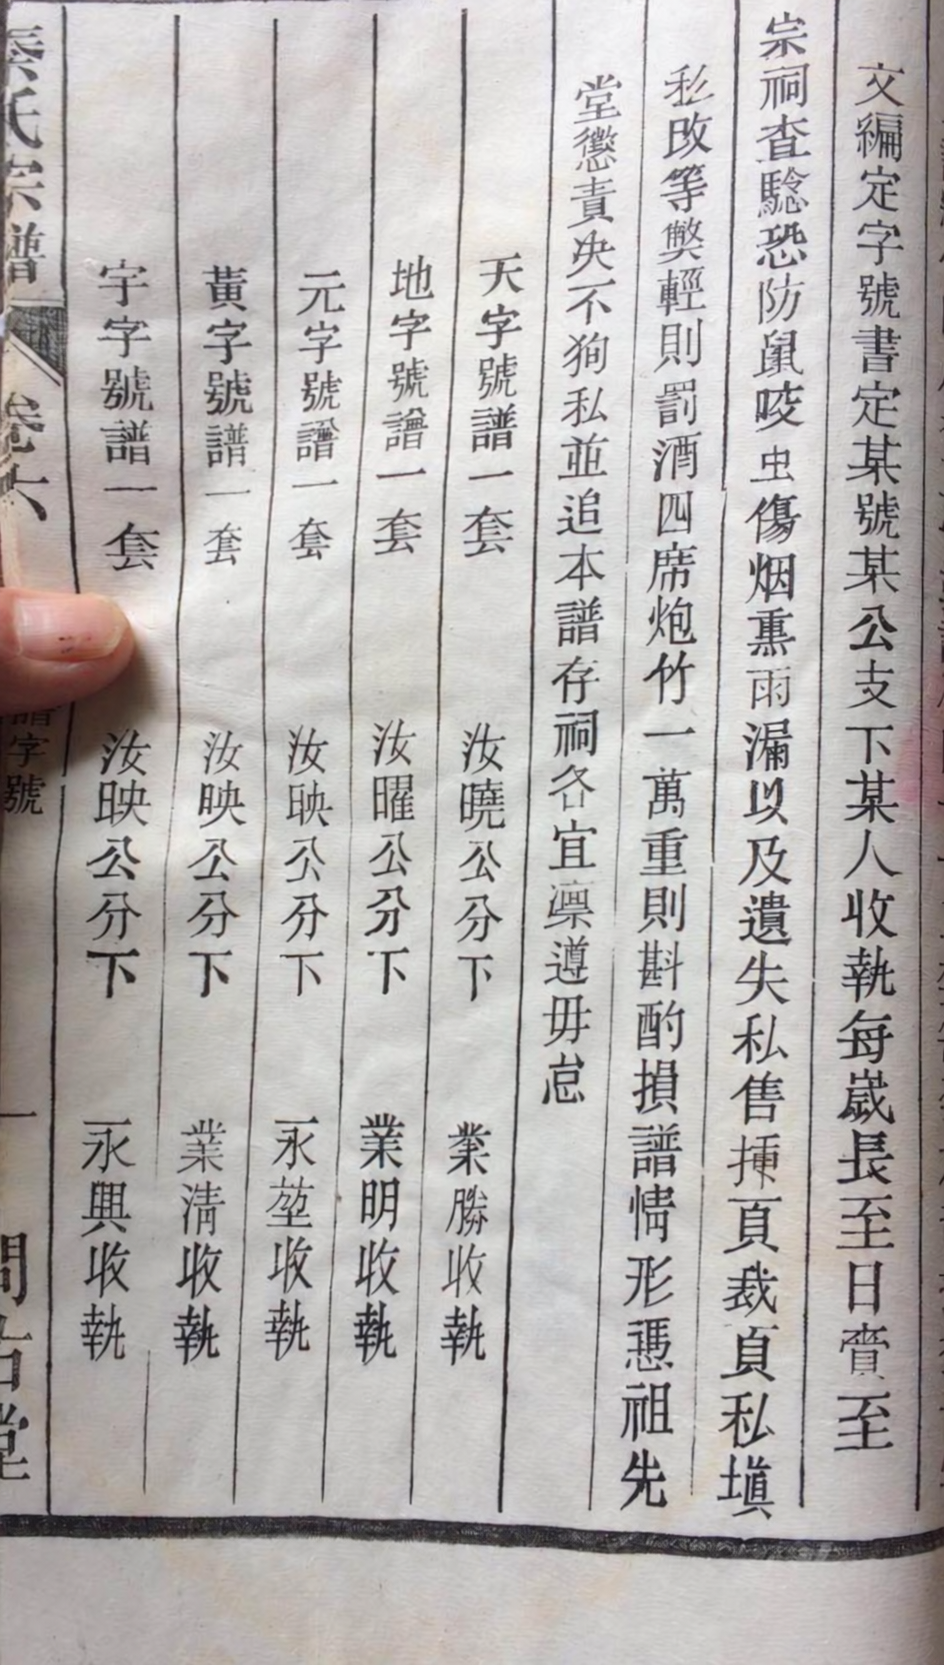 文編定字號書定某號某公支下某人收執每歲長至日賫至
宗祠查驗恐防鼠咬虫傷烟熏雨漏以及遺失私售揷頁裁頁私塡
私改等獘輕則罰酒四席炮竹一萬重則斟酌損譜情形慿祖先
堂懲責决不狥私並追本譜存祠各宜凛遵毋怠
天字號譜一套 汝曉公分下 業勝收執
地字號譜一套 汝曜公分下 業明收執
元字號譜一套 汝映公分下 永堃收執
黃字號譜一套 汝映公分下 業淸收執
宇字號譜一套 汝映公分下 永興收執
氏宗譜 卷六 譜字號 一